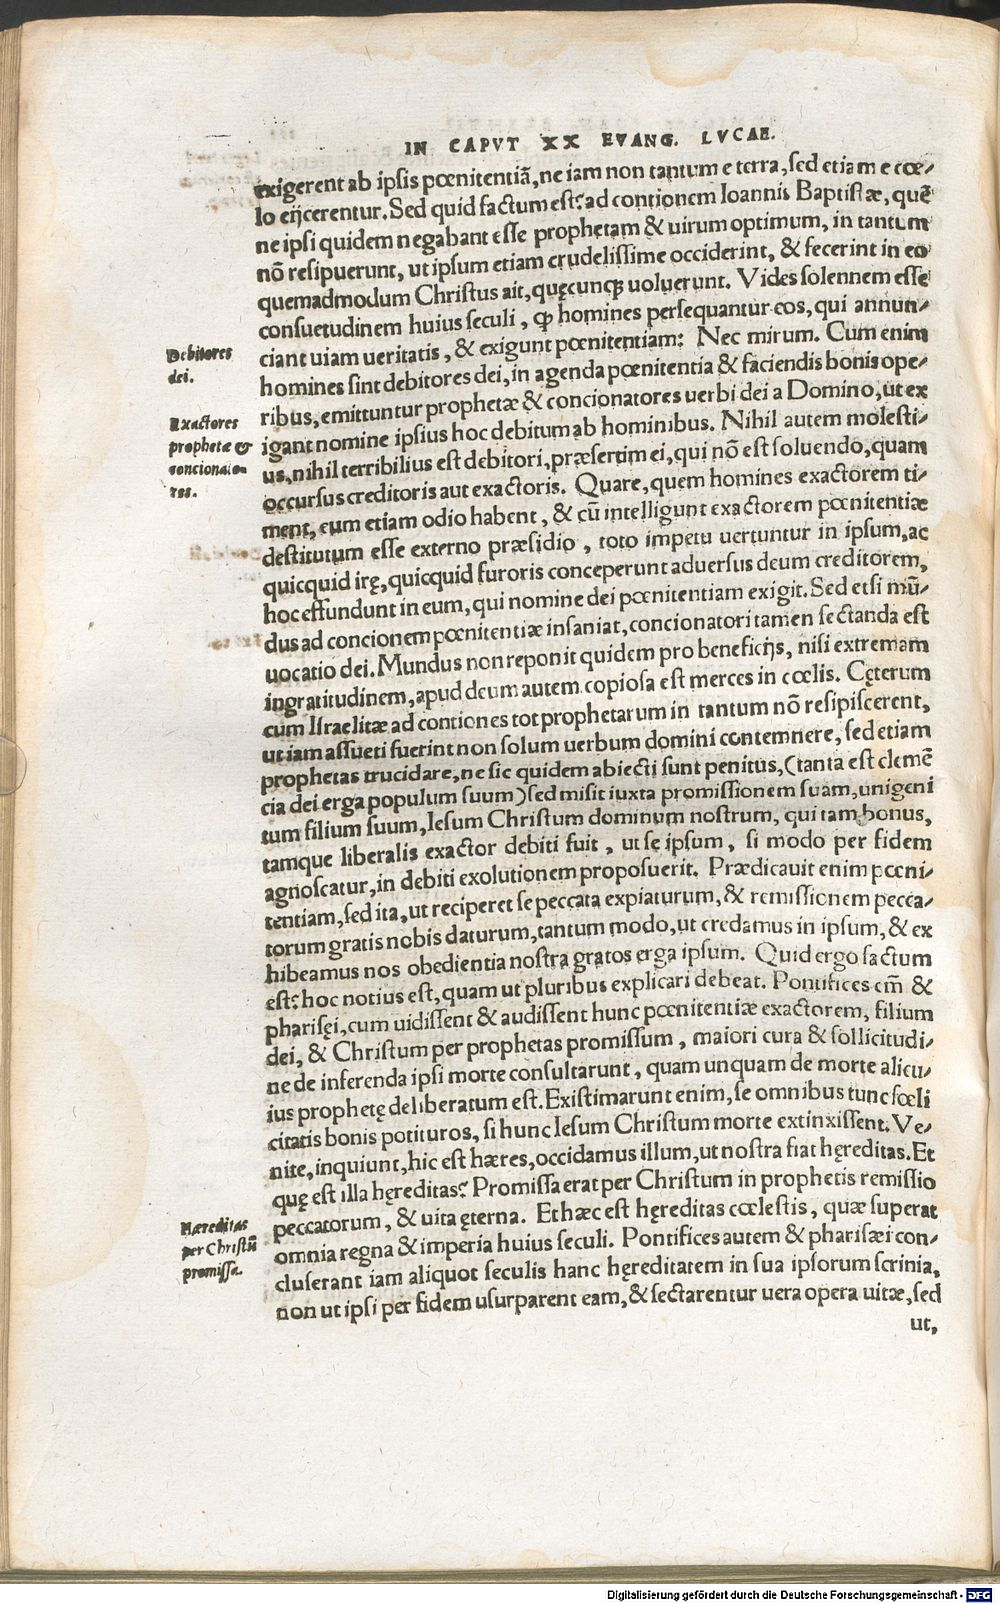 IN CAPVT XX EVANG. LVCAE.
exigerent ab ipsis pœnitentiã, ne iam non tantum e terra, sed etiam e cœ-
lo eijcerentur. Sed quid factum est? ad contionem Ioannis Baptistæ, quẽ
ne ipsi quidem negabant esse prophetam & uirum optimum, in tantum
nõ resipuerunt, ut ipsum etiam crudelissime occiderint, & fecerint in eo
quemadmodum Christus ait, quęcunqꝫ uoluerunt. Vides solennem esse
consuetudinem huius seculi, ꝙ homines persequantur eos, qui annun-
ciant uiam ueritatis, & exigunt pœnitentiam: Nec mirum. Cum enim
homines sint debitores dei, in agenda pœnitentia & faciendis bonis ope-
ribus, emittuntur prophetæ & concionatores uerbi dei a Domino, ut ex
igant nomine ipsius hoc debitum ab hominibus. Nihil autem molesti-
us, nihil terribilius est debitori, præsertim ei, qui nõ est soluendo, quam
occursus creditoris aut exactoris. Quare, quem homines exactorem ti-
ment, eum etiam odio habent, & cũ intelligunt exactorem pœnitentiæ
destitutum esse externo præsidio, toto impetu uertuntur in ipsum, ac
quicquid irę, quicquid furoris conceperunt aduersus deum creditorem,
hoc effundunt in eum, qui nomine dei pœnitentiam exigit. Sed etsi mũ-
dus ad concionem pœnitentiæ insaniat, concionatori tamen sectanda est
uocatio dei. Mundus non reponit quidem pro beneficijs, nisi extremam
ingratitudinem, apud deum autem copiosa est merces in cœlis. Cęterum
cum Israelitæ ad contiones tot prophetarum in tantum nõ resipiscerent,
ut iam assueti fuerint non solum uerbum domini contemnere, sed etiam
prophetas trucidare, ne sic quidem abiecti sunt penitus, (tanta est clemẽ
cia dei erga populum suum) sed misit iuxta promissionem suam, unigeni
tum filium suum, Iesum Christum dominum nostrum, qui tam bonus,
tamque liberalis exactor debiti fuit, ut se ipsum, si modo per fidem
agnoscatur, in debiti exolutionem proposuerit. Prædicauit enim pœni-
tentiam, sed ita, ut reciperet se peccata expiaturum, & remissionem pecca-
torum gratis nobis daturum, tantum modo, ut credamus in ipsum, & ex
hibeamus nos obedientia nostra gratos erga ipsum. Quid ergo factum
est? hoc notius est, quam ut pluribus explicari debeat. Pontifices em̃ &
pharisęi, cum uidissent & audissent hunc pœnitentiæ exactorem, filium
dei, & Christum per prophetas promissum, maiori cura & sollicitudi-
ne de inferenda ipsi morte consultarunt, quam unquam de morte alicu-
ius prophetę deliberatum est. Existimarunt enim, se omnibus tunc fœli
citatis bonis potituros, si hunc Iesum Christum morte extinxissent. Ve-
nite, inquiunt, hic est hæres, occidamus illum, ut nostra fiat hęreditas. Et
quę est illa hęreditas? Promissa erat per Christum in prophetis remissio
peccatorum, & uita ęterna. Et hæc est hęreditas cœlestis, quæ superat
omnia regna & imperia huius seculi. Pontifices autem & pharisæi con-
cluserant iam aliquot seculis hanc hęreditatem in sua ipsorum scrinia,
non ut ipsi per fidem usurparent eam, & sectarentur uera opera uitæ, sed
ut,
Debitores
dei.
Exactores
prophetæ &
concionato-
res.
Hæreditas
per Christũ
promissa.
Digitalisierung gefördert durch die Deutsche Forschungsgemeinschaft - DFG